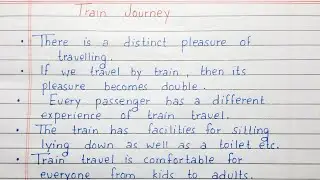 Train Journey
• There is a distinct pleasure of
travelling.
• If we travel by train, then its
pleasure becomes double.
• Every passenger has a different
experience of train travel.
• The train has facilities for sitting
lying down as well as a toilet etc.
• Train travel is comfortable for
everyone from kids to adults.